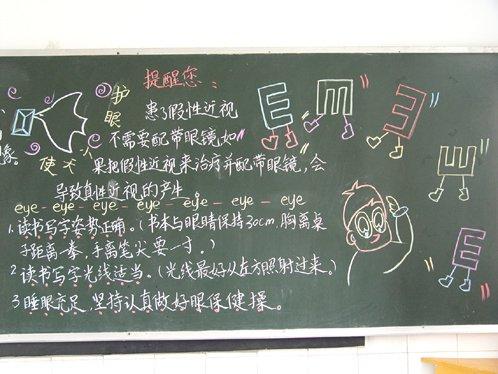 提醒您：
护眼
患了假性近视
不需要配带眼镜,如
果把假性近视来治疗并配带眼镜,会
导致真性近视的产生。
eye - eye - eye - eye - eye - eye - eye
1.读书写字姿势正确。(书本与眼睛保持30cm,胸离桌
子距离一拳,手离笔尖要一寸。)
2 读书写字光线适当。(光线最好从左方照射过来。)
3.睡眠充足,坚持认真做好眼保健操。
E
E
E
E
E